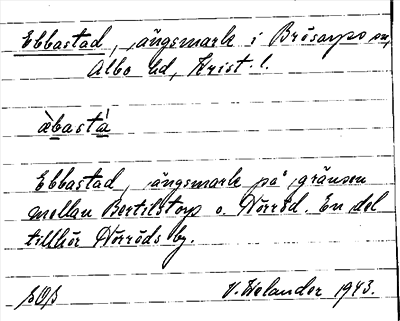 Ebbastad, ängsmark i Brösarps sn,
Albo hd, Krist. l.
àbastà
Ebbastad, ängsmark på gränsen
mellan Bertilstorp o. Norröd. En del
tillhör Norröds by.
V. Welander 1943.